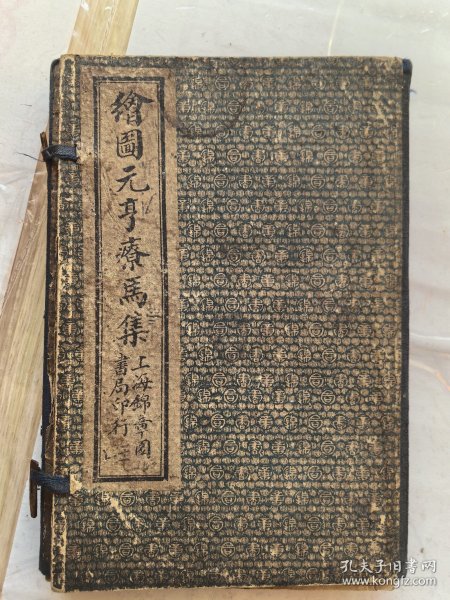 繪圖元亨療馬集
上海錦章圖
書局印行
孔夫子旧书网
www.kongfz.com